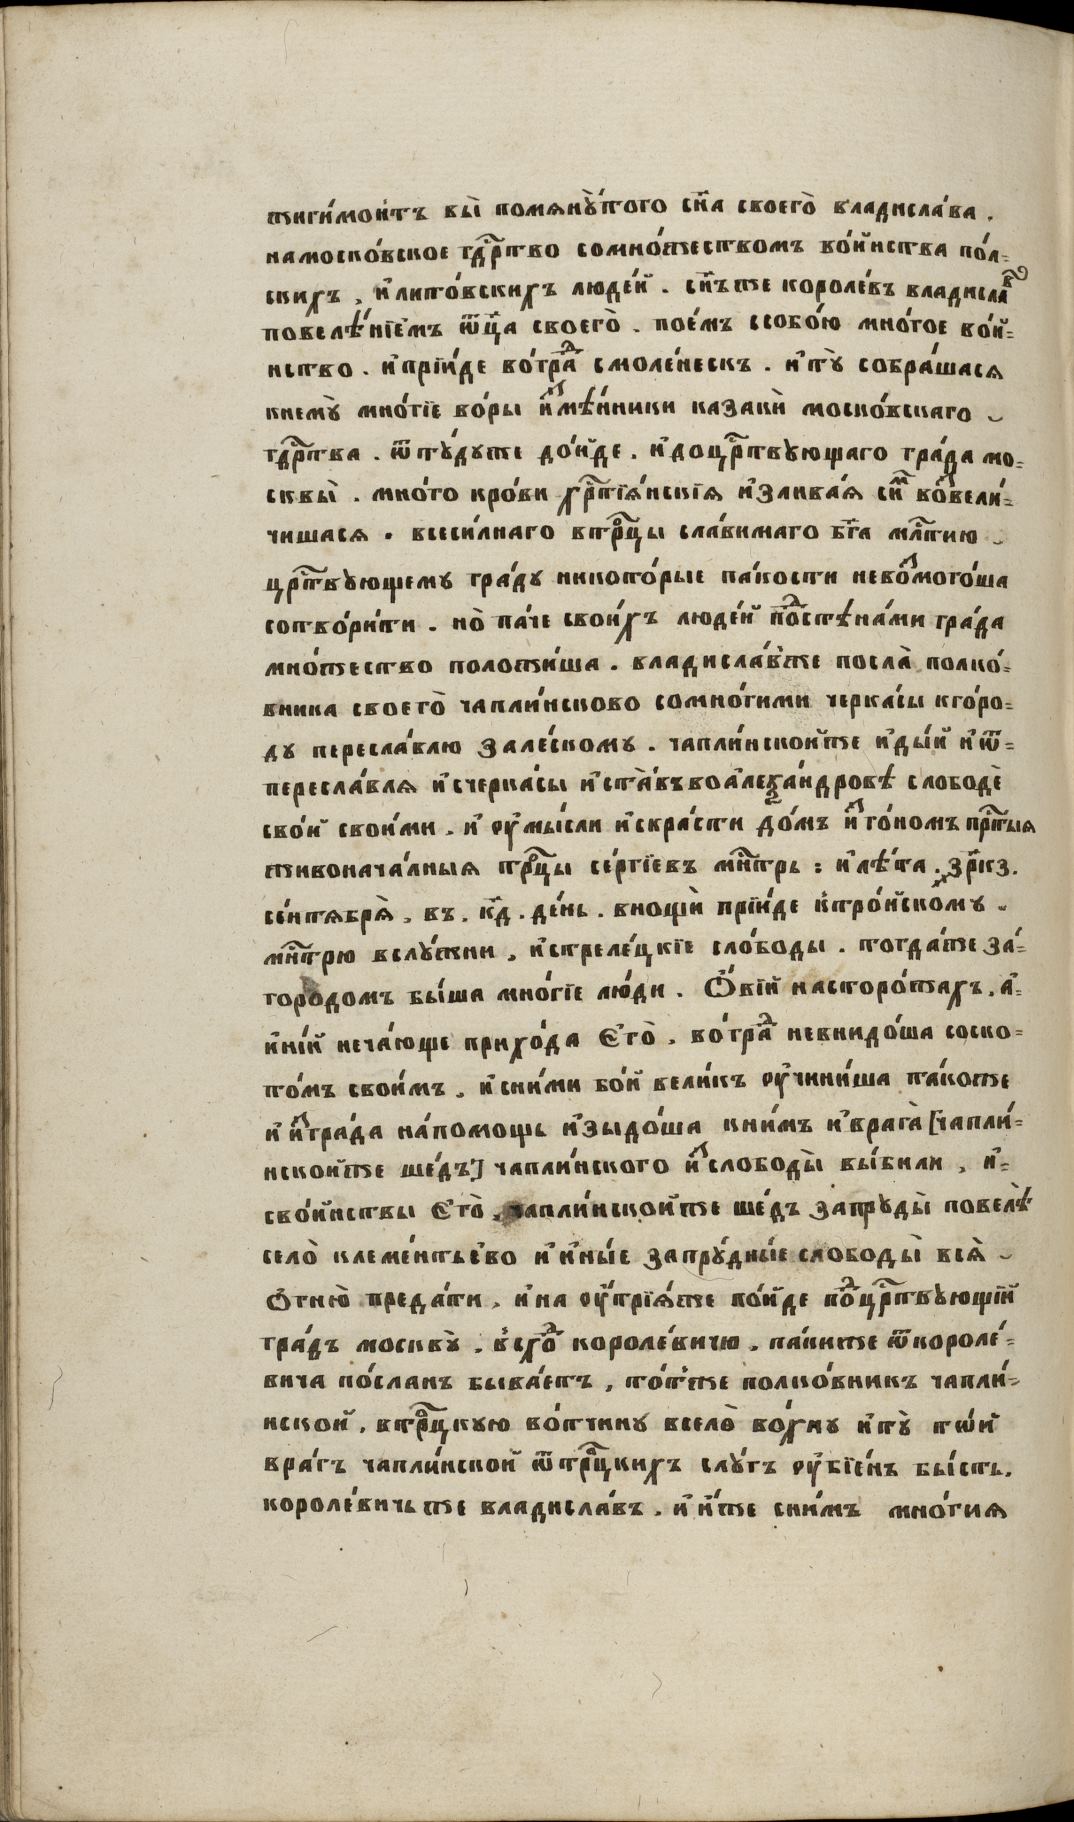 жиги́монтъ вы̀ помянꙋ́того сн҃а своего̀ владисла́ва .
намоско́вское гдⷭ҇рⷭ҇тво сомно́жествомъ во́йнства по́л-
скихъ , и҆лито́вскихъ люде́й . сн҃ъже короле́въ владислаⷡ҇
повелѣ́нїемъ ѿц҃а своего̀ . пое́мъ ссобо́ю мно́гое во́й-
нство . и҆прїи́де во́граⷣ смоле́нескъ . и҆тꙋ̀ собра́шася
кнемꙋ̀ мно́гїе во́ры и҆ꙁмѣ́нники казакѝ моско́вскаго
гдⷭ҇рⷭ҇тва . ѿтꙋ́дуже до́йде . и҆доцрⷭ҇твꙋющаго гра́да мо-
сквы̀ . мно́го кро́ви хрⷭ҇тїя́нскїя и҆злива́я си́мⷨ во́ꙁвели́-
чишася . всеси́лнаго втрⷪ҇цы сла́вимаго бг҃а млⷭ҇тию
црⷭ҇твꙋющему гра́ду никото́рые па́кости нево́ꙁмого́ша
сотвори́ти . но̀ па́че свои́хъ люде́й поⷣстѣна́ми гра́да
мно́жество положи́ша . владисла́вже посла̀ полко́-
вника своего̀ чапли́нсково сомно́гими черка́сы кго́ро-
ду пересла́влю зале́скому . чапли́нскойже и҆ды́й и҆ѿ-
пересла́вля и҆счерка́сы и҆ста́въ во а҆леѯа́ндровѣ слободѐ
сво́й своими . и҆ ᲂу҆мы́сли и҆скра́сти до́мъ и҆ꙁго́номъ прⷭ҇тыя
живонача́лныя трⷪ҇цы се́ргїевъ мн҃трь : и҆лѣ́та . ҂зр҃кз .
сентября̀ . въ . к҃д . де́нь . вно́щѝ прїи́де ктро́йскому
мн҃трю вслу́жни , и҆стреле́цкїе сло́боды . тогда́же за-
го́родомъ бы́ша мно́гїе лю́ди . Ѻ҆вїи́ насторо́жахъ , а҆-
и҆нїи́ неча́юще прихо́да Е҆го̀ . во́граⷣ невнидо́ша соско-
то́мъ свои́мъ . и҆сни́ми бо́й вели́къ ᲂу҆чини́ша та́коже
и҆ и҆ꙁгра́да на́помощь и҆зыдо́ша кни́мъ и҆врага̀ [чапли́-
нскойже ше́дъ] чапли́нского и҆ꙁслободы̀ вы́били , и҆-
сво́йнствы Е҆го̀ , чапли́нскойже ше́дъ запруды̀ повелѣ̀
село̀ клеме́нтьево и҆ и҆ны́е запрꙋ́дные слободы̀ вся̀
Ѻ҆гню̀ преда́ти , и҆на ᲂу҆́трїяже по́йде поⷣцрⷭ҇твꙋющїй
гра́дъ москвꙋ̀ . всхоⷣ короле́вичю . па́киже ѿкороле́-
вича по́сланъ быва́етъ , то́тже полко́вникъ чапли́-
нской , втрⷪ҇цкую во́тчину вселѡ̀ во́хну и҆тꙋ̀ тѡ́й
вра́гъ чапли́нской ѿтрⷪ҇цкихъ слу́гъ ᲂу҆бїе́нъ бы́сть .
короле́вичьже владисла́въ . и҆ и҆́же сни́мъ мно́гия